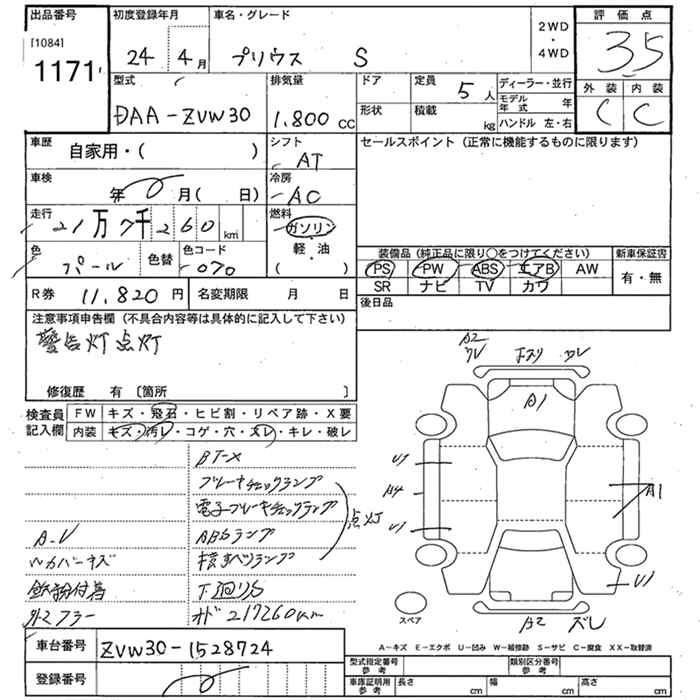 出品番号
[1084]
1171
初度登録年月
24年 4月
車名・グレード
プリウス S
2WD
・
4WD
評価点
3.5
外装 内装
C C
型式
DAA-ZVW30
排気量
1.800 CC
ドア
形状
定員
5人
積載
kg
ディーラー・並行
モデル年式 年
ハンドル 左・右
車歴
自家用・( )
シフト
AT
セールスポイント(正常に機能するものに限ります)
車検
年 月( 日)
冷房
AC
走行
21万7千260km
燃料
ガソリン
軽・油
・
( )
色
パール
色替
色コード
070
装備品(純正品に限り○をつけてください)
新車保証書
PS PW ABS エアB AW
SR ナビ TV カワ
有・無
R券 11,820円
名変期限 月 日
後日品
注意事項申告欄(不具合内容等は具体的に記入して下さい)
警告灯点灯
修復歴 有〔箇所 〕
検査員記入欄
FW キズ・飛石・ヒビ割・リペア跡・X要
内装 キズ・汚レ・コゲ・穴・スレ・キレ・破レ
BT-X
ブレーキチェックランプ
電子ブレーキチェックランプ
ABSランプ
点灯
A・U
鉄粉付着
下廻りS
オド 217260km
A2
ワレ
A1
A1
U
A2 ズレ
スペア
A-キズ E-エクボ U-凹み W-補修跡 S-サビ C-腐食 XX-取替済
車台番号 ZVW30-1528724
登録番号
型式指定番号
参考
類別区分番号
参考
車庫証明用
参考
長さ cm
幅 cm
高さ cm